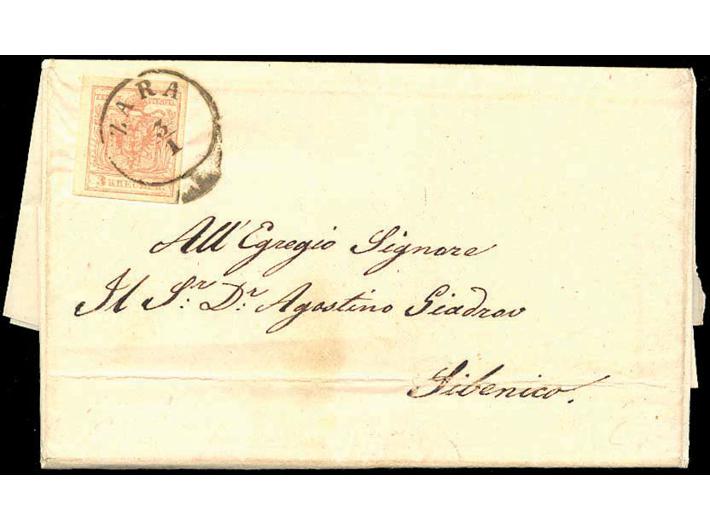 ZARA
3/1
3 KREUZER
All' Egregio Signore
Il S.r D.r Agostino Giadrov
Sibenico.